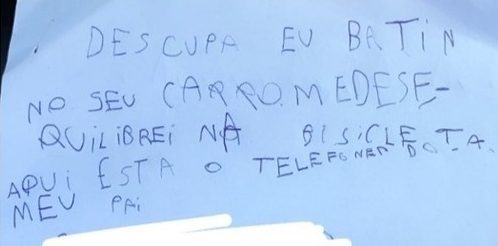 DESCUPA EU BATIN
NO SEU CARRO MEDESE-
QUILIBREI NA BISICLETA.
AQUI ESTA O TELEFONER DO
MEU PAI